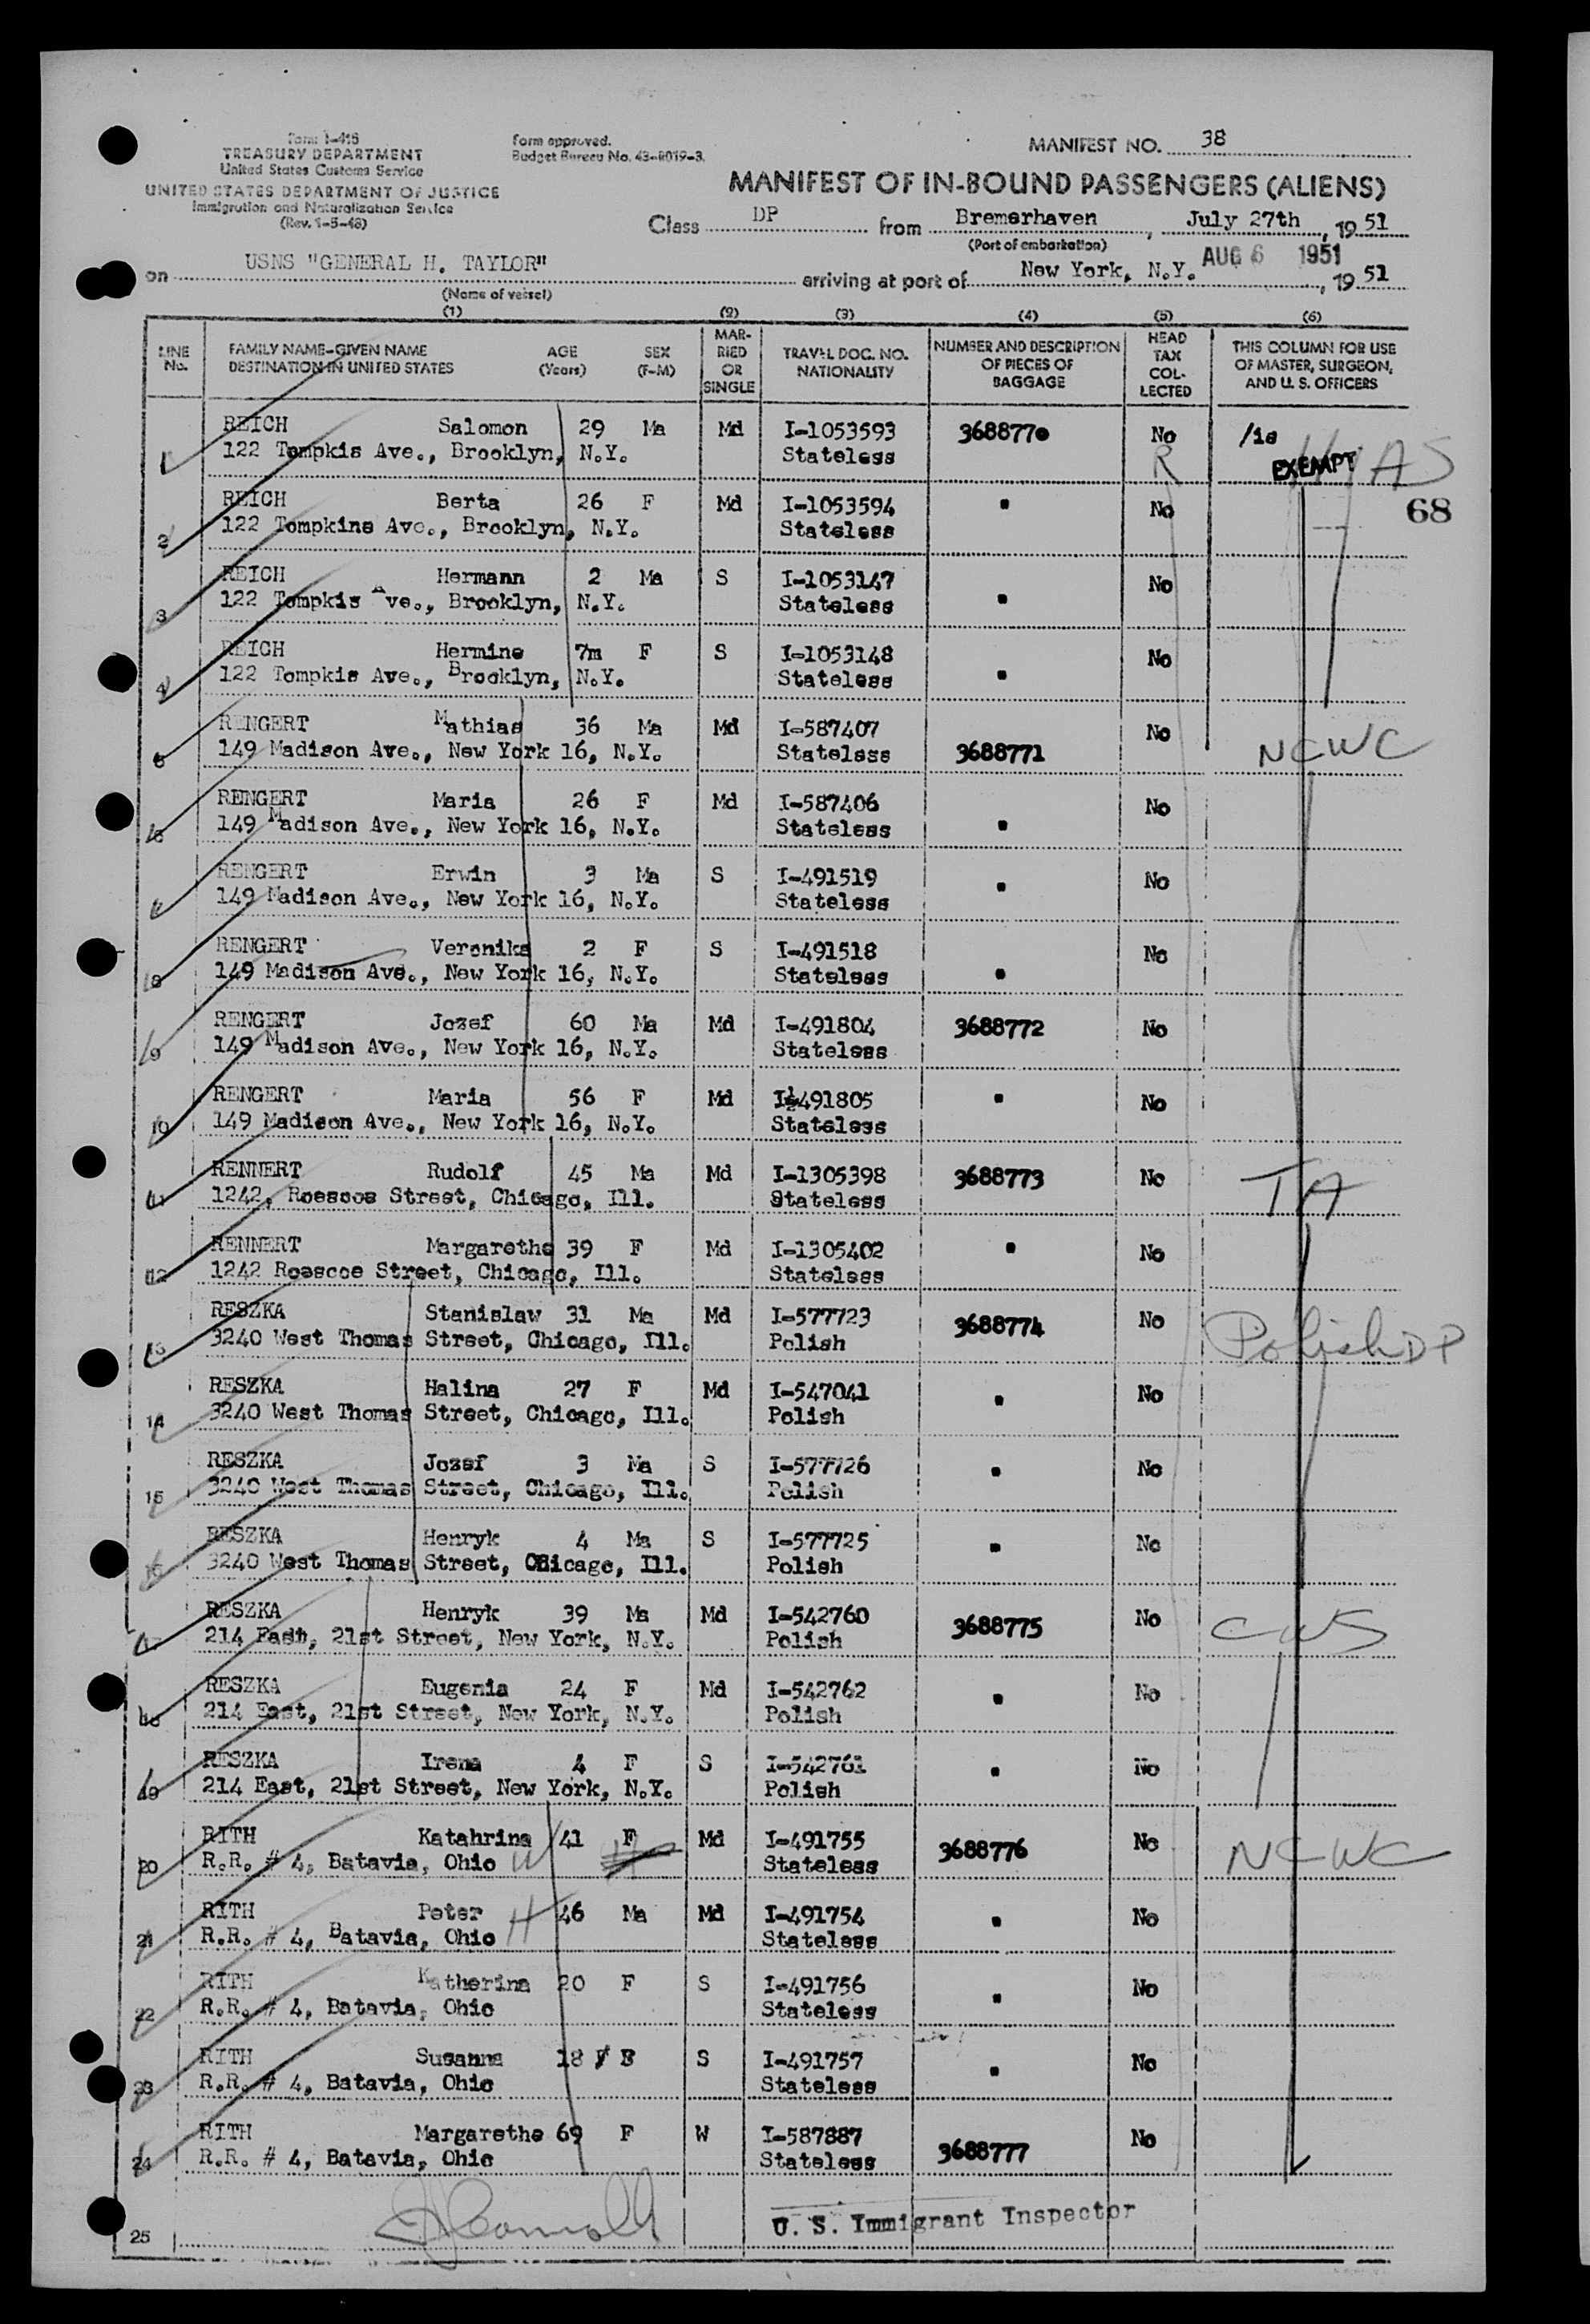 Form I-418
TREASURY DEPARTMENT
United States Customs Service
UNITED STATES DEPARTMENT OF JUSTICE
Immigration and Naturalization Service
(Rev. 1-5-48)
Form approved.
Budget Bureau No. 43-R019-3.
MANIFEST NO. 38
MANIFEST OF IN-BOUND PASSENGERS (ALIENS)
Class DP from Bremerhaven, July 27th, 19 51
(Port of embarkation)
AUG 6 1951
on USNS "GENERAL H. TAYLOR" arriving at port of New York, N.Y., 19 51
(Name of vessel)
(1) (2) (3) (4) (5) (6)
LINE No.
FAMILY NAME-GIVEN NAME AGE SEX
DESTINATION IN UNITED STATES (Years) (F-M)
MAR-RIED OR SINGLE
TRAVEL DOC. NO. NATIONALITY
NUMBER AND DESCRIPTION OF PIECES OF BAGGAGE
HEAD TAX COL-LECTED
THIS COLUMN FOR USE OF MASTER, SURGEON, AND U. S. OFFICERS
1 REICH Salomon 29 Ma Md I-1053593 3688770 No
122 Tompkis Ave., Brooklyn, N.Y. Stateless R EXEMPT
68
2 REICH Berta 26 F Md I-1053594 " No
122 Tompkins Ave., Brooklyn, N.Y. Stateless
3 REICH Hermann 2 Ma S I-1053147 " No
122 Tompkis Ave., Brooklyn, N.Y. Stateless
4 REICH Hermine 7m F S I-1053148 " No
122 Tompkis Ave., Brooklyn, N.Y. Stateless
5 RENGERT Mathias 36 Ma Md I-587407 No NCWC
149 Madison Ave., New York 16, N.Y. Stateless 3688771
6 RENGERT Maria 26 F Md I-587406 " No
149 Madison Ave., New York 16, N.Y. Stateless
7 RENGERT Erwin 3 Ma S I-491519 " No
149 Madison Ave., New York 16, N.Y. Stateless
8 RENGERT Veronika 2 F S I-491518 " No
149 Madison Ave., New York 16, N.Y. Stateless
9 RENGERT Jozef 60 Ma Md I-491804 3688772 No
149 Madison Ave., New York 16, N.Y. Stateless
10 RENGERT Maria 56 F Md I-491805 " No
149 Madison Ave., New York 16, N.Y. Stateless
11 RENNERT Rudolf 45 Ma Md I-1305398 3688773 No TA
1242, Roescoe Street, Chicago, Ill. Stateless
12 RENNERT Margarethe 39 F Md I-1305402 " No
1242 Roescoe Street, Chicago, Ill. Stateless
13 RESZKA Stanislaw 31 Ma Md I-577723 3688774 No Polish DP
3240 West Thomas Street, Chicago, Ill. Polish
14 RESZKA Halina 27 F Md I-547041 " No
3240 West Thomas Street, Chicago, Ill. Polish
15 RESZKA Jozef 3 Ma S I-577726 " No
3240 West Thomas Street, Chicago, Ill. Polish
16 RESZKA Henryk 4 Ma S I-577725 " No
3240 West Thomas Street, Chicago, Ill. Polish
17 RESZKA Henryk 39 Ma Md I-542760 3688775 No CWS
214 East, 21st Street, New York, N.Y. Polish
18 RESZKA Eugenia 24 F Md I-542762 " No
214 East, 21st Street, New York, N.Y. Polish
19 RESZKA Irena 4 F S I-542761 " No
214 East, 21st Street, New York, N.Y. Polish
20 RITH Katahrina 41 F Md I-491755 3688776 No NCWC
R.R. # 4, Batavia, Ohio W Stateless
21 RITH Peter H 46 Ma Md I-491754 " No
R.R. # 4, Batavia, Ohio Stateless
22 RITH Katherina 20 F S I-491756 " No
R.R. # 4, Batavia, Ohio Stateless
23 RITH Susanna 18 F S I-491757 " No
R.R. # 4, Batavia, Ohio Stateless
24 RITH Margarethe 69 F W I-587887 3688777 No
R.R. # 4, Batavia, Ohio Stateless
25 U. S. Immigrant Inspector